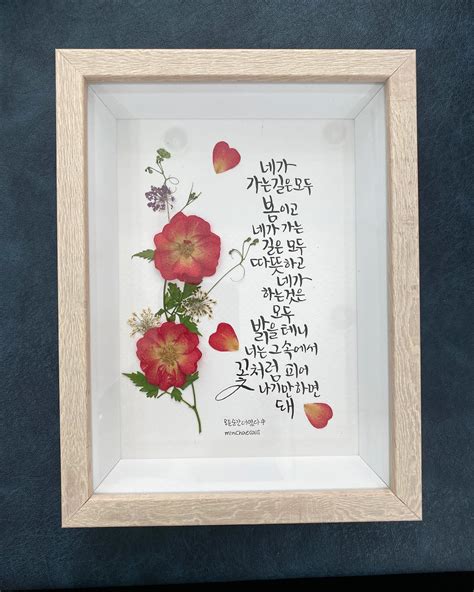 네가
가는길은모두
봄이고
네가 가는
길은 모두
따뜻하고
네가
하는것은
모두
밝을 테니
너는 그 속에서
꽃처럼 피어
나기만하면
돼